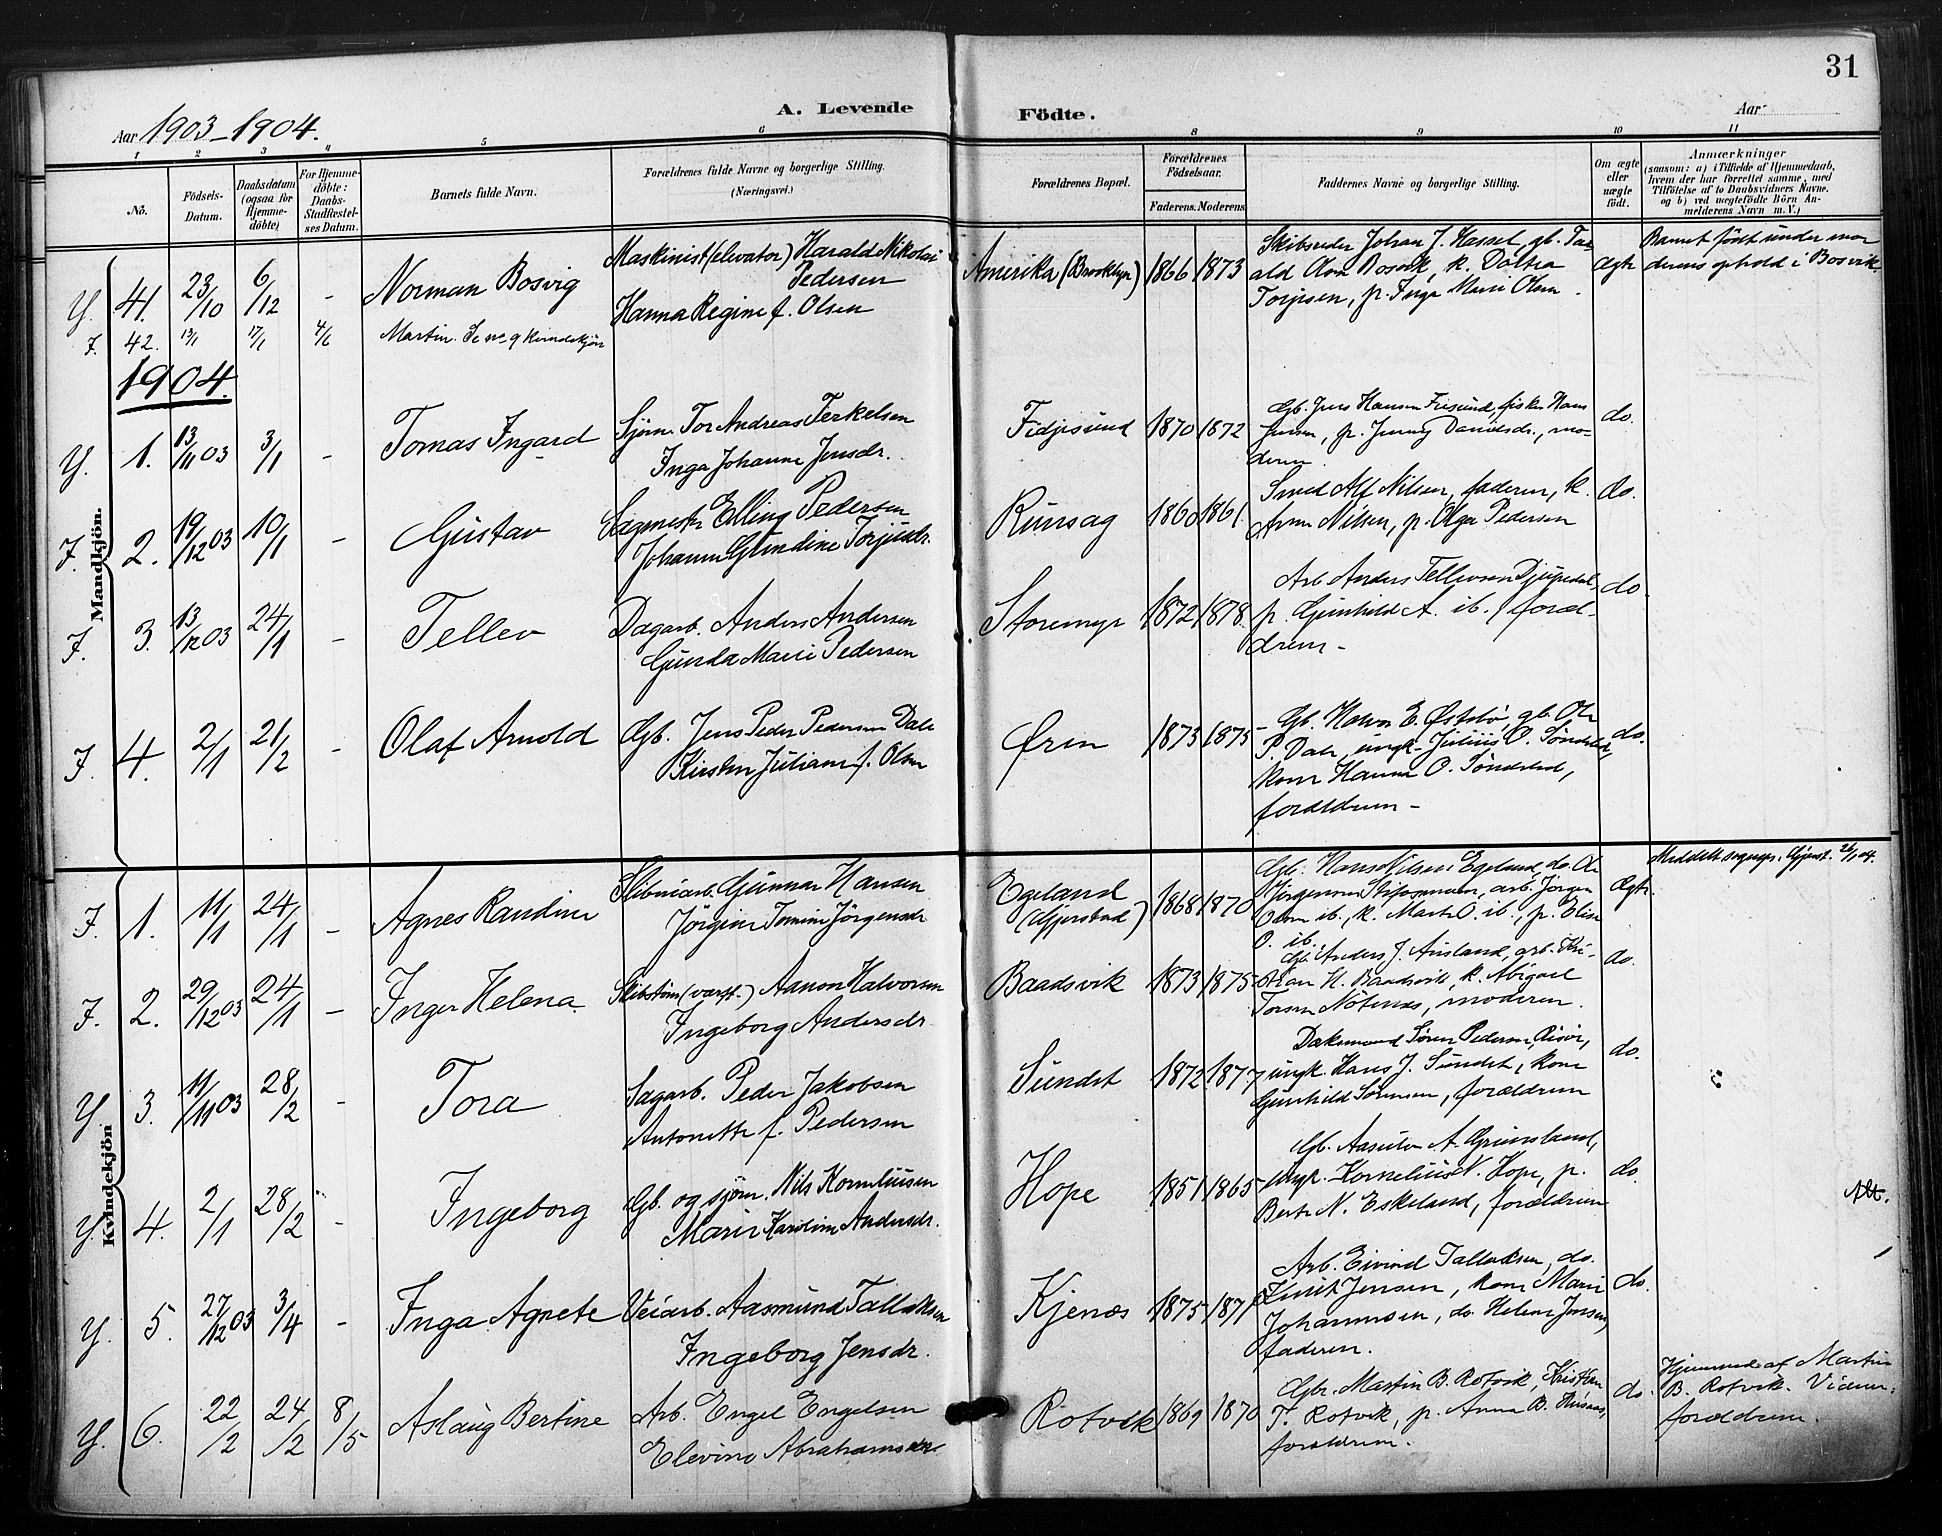 31
A. Levende Födte.
Aar 1903-1904.
Aar
1 2 3 4 5 6 8 9 10 11
No.
Födsels-Datum.
Daabsdatum (ogsaa for Hjemme-döbte)
For Hjemme-döbte: Daabs-Stadfæstel-ses Datum.
Barnets fulde Navn.
Forældrenes fulde Navne og borgerlige Stilling.
(Næringsvei.)
Forældrenes Bopæl.
Forældrenes Födselsaar.
Faderens. Moderens
Faddernes Navne og borgerlige Stilling.
Om ægte eller uægte födt.
Anmærkninger
(saasom: a) i Tilfælde af Hjemmedaab,
hvem der har forrettet samme, med
Tilföielse af to Daabsvidners Navne.
og b) ved uægtefödte Börn An-
melderens Navn m. V.)
Y. 41. 23/10 6/12 - Norman Bosvig
Maskinist (elevator) Harald Nikolai
Pedersen
Hanna Regine f. Olsen
Amerika (Brooklyn) 1866 1873
Skibsreder Johan J. Hassel, gb. Tar-
ald Olsen Bosvik, k.
Torjesen, p. Inga Marie Olsen.
Ægte
Barnet født under mo-
derens ophold i Bosvik
F. 42. 13/1 17/1 4/6 Martin. Se no 9 kvindekjön
1904.
Mandkjön.
Y. 1. 13/11 03 3/1 - Tomas Ingard
Sjøm. Tor Andreas Terkelsen
Inga Johanne Jensdr.
Fidjesund 1870 1872
Gb. Jens Hansen Fiesund, fisker Hans
Jensen, p. Jenny Danielsdr., mo-
deren.
do.
F. 2. 19/12 03 10/1 - Gustav
Sagmester Elling Pedersen
Johanne Gundine Torjusdr.
Rünsag 1860 1861.
Smed Alf Nilsen, faderen, k.
Anne Nilsen, p. Olga Pedersen
do.
F. 3. 13/12 03 24/1 - Tellev
Dagarb. Anders Andersen
Gunda Marie Pedersen
Storemyr 1872 1878.
Arb. Anders Tellevsen Djupedal,
p. Gunhild A. ib., foræl-
drene -
do.
F. 4. 2/1 21/2 - Olaf Arnold
Gb. Jens Peder Pedersen Dale
Kirsten Juliane f. Olsen
Øren 1873 1875
Gb. Halvor E. Østebø, gb. Ole
P. Dale, ungk. Julius O. Søndeled,
kone Hanna O. Søndeled,
forældrene -
do.
Kvindekjön
F. 1. 11/1 24/1 - Agnes Randine
Skibstiarb. Gunnar Hansen
Jörgine Tomine Jörgensdr.
Egeland
(Gjerstad)
1868 1870
Gb. Hans Nilsen Egeland, do. Ole
Jörgensen, arb. Jörgen
Olsen ib., k. Marte O. ib., p. Elise
O. ib.
Ægte
Meddelt sognepr. i Gjerst. 26/1 04.
F. 2. 29/12 03 24/1 - Inger Helena
Skibstöm. (værft.) Aanon Halvorsen
Ingeborg Andersdr.
Baadsvik 1873 1875
Gb. Anders J. Ausland, arb. Kri-
stian H. Baadsvik, k. Abigael
Torsen, moderen.
do.
Y. 3. 11/11 03 28/2 - Tora
Sagarb. Peder Jakobsen
Antonette f. Pedersen
Sundet 1872 1877
Dæksmand Søren Pedersen, Risør,
ungk. Hans J. Sundet, kone
Gunhild Sørensen, forældrene
do.
Y. 4. 2/1 28/2 - Ingeborg
Gb. og sjøm. Nils Korneliusen
Marie Karoline Andersdr.
Hope 1851 1865
Gb. Aasulv A. Grimsland,
ungk. Kornelius N. Hope, p.
Berte N. Eskeland, forældrene
do.
Att.
Y. 5. 27/12 03 3/4 - Inga Agnete
Veiarb. Aasmund Tallaksen
Ingeborg Jensdr.
Kjenæs 1875
Arb. Eivind Tallaksen, do.
Knut Jensen, kone Marie
Johannesen, do. Helene Jensen,
faderen.
do.
Y. 6. 22/2 24/2 8/5 Aslaug Bertine
Arb. Engel Engelsen
Elevine Abrahamsdr.
Rotvik 1869 1870
Gbr. Martin B. Rotvik, Kristian
T. Rotvik, p. Anna B. Husaas,
forældrene.
do.
Hjemmed. af Martin
B. Rotvik. Vidner:
forældrene.